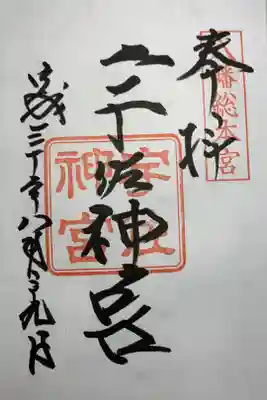 奉拝
八幡総本宮
宇佐神宮
宇佐神宮
平成三十年八月二十九日